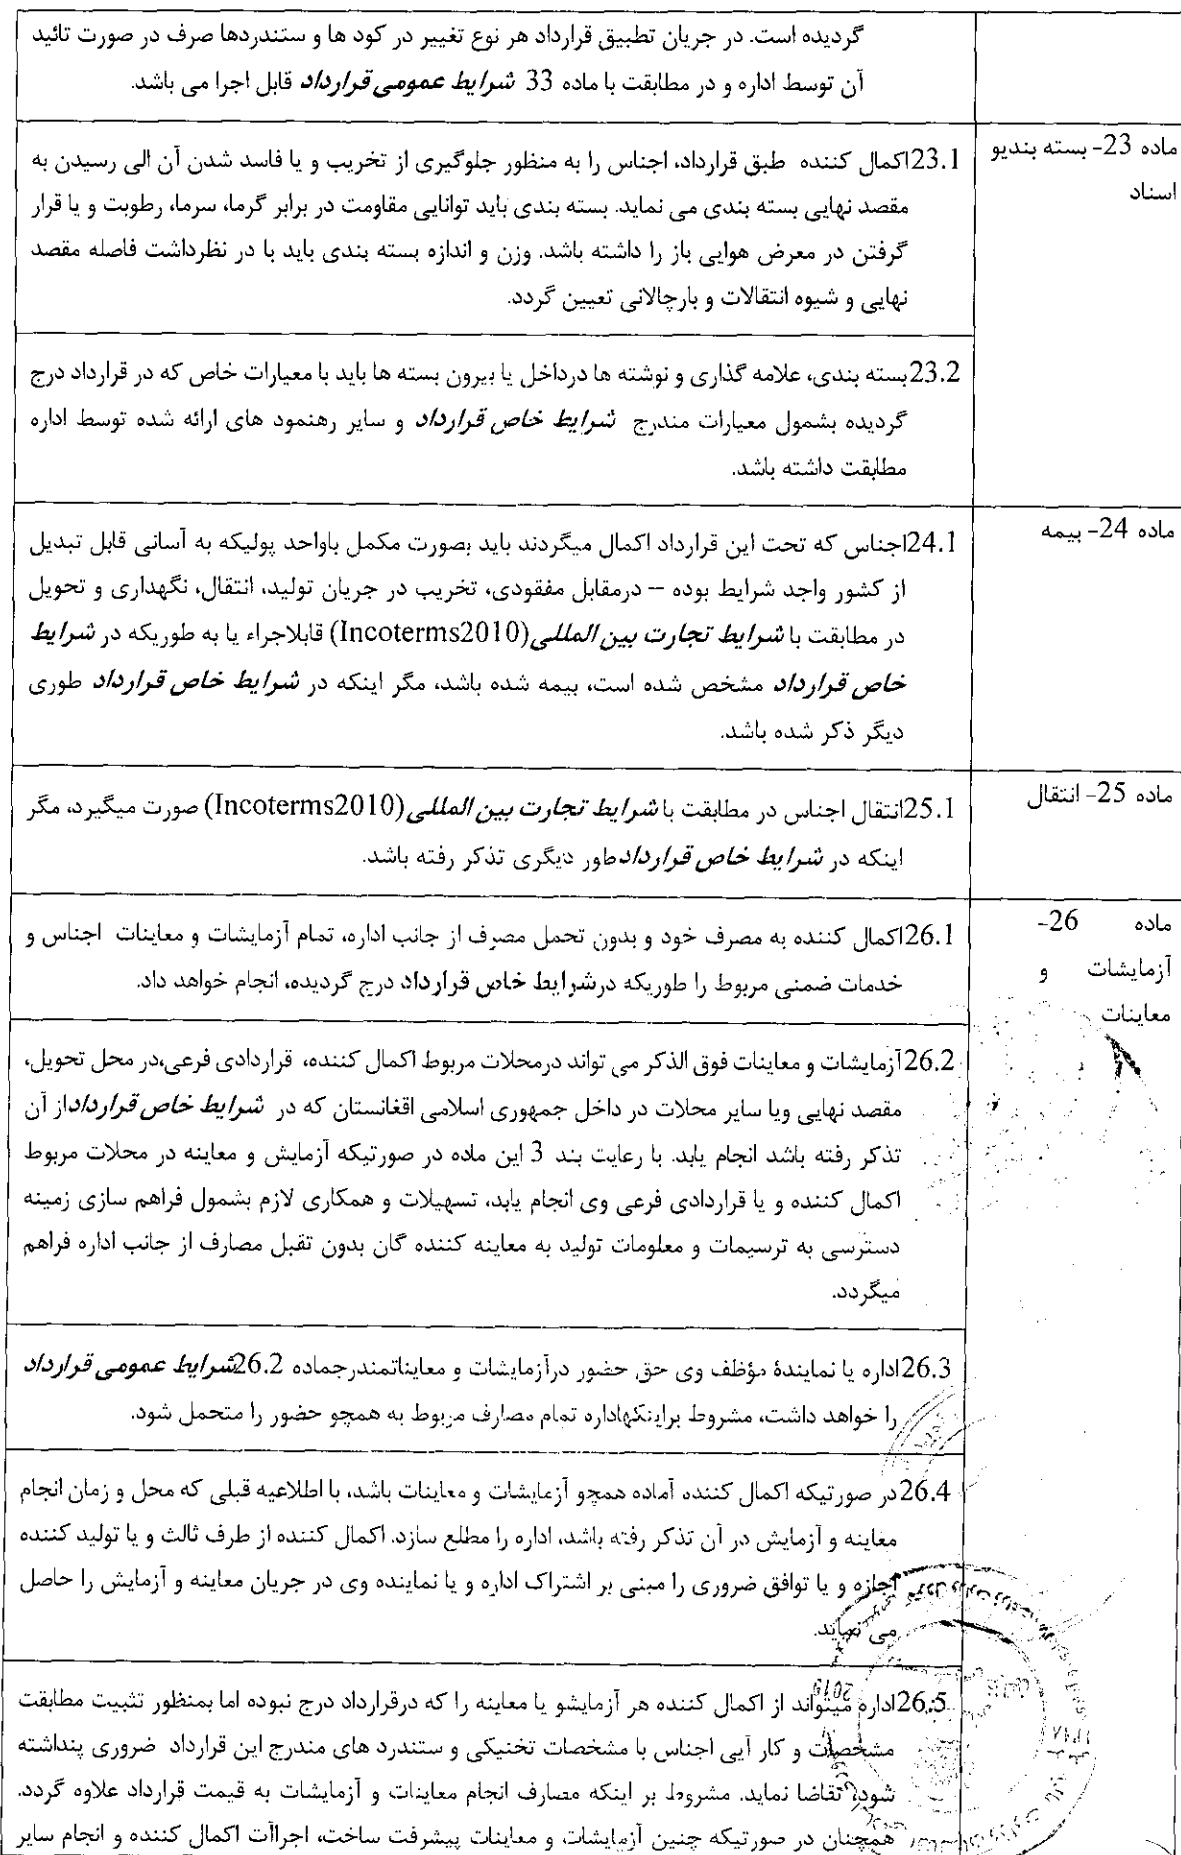 گردیده است. در جریان تطبیق قرارداد هر نوع تغییر در کود ها و ستندردها صرف در صورت تائید
آن توسط اداره و در مطابقت با ماده 33 شرایط عمومی قرارداد قابل اجرا می باشد.
ماده 23- بسته بندیو
اسناد
23.1اکمال کننده طبق قرارداد، اجناس را به منظور جلوگیری از تخریب و یا فاسد شدن آن الی رسیدن به
مقصد نهایی بسته بندی می نماید. بسته بندی باید توانایی مقاومت در برابر گرما، سرما، رطوبت و یا قرار
گرفتن در معرض هوایی باز را داشته باشد. وزن و اندازه بسته بندی باید با در نظرداشت فاصله مقصد
نهایی و شیوه انتقالات و بارچالانی تعیین گردد.
23.2بسته بندی، علامه گذاری و نوشته ها درداخل یا بیرون بسته ها باید با معیارات خاص که در قرارداد درج
گردیده بشمول معیارات مندرج شرایط خاص قرارداد و سایر رهنمود های ارائه شده توسط اداره
مطابقت داشته باشد.
ماده 24- بیمه
24.1اجناس که تحت این قرارداد اکمال میگردند باید بصورت مکمل باواحد پولیکه به آسانی قابل تبدیل
از کشور واجد شرایط بوده – درمقابل مفقودی، تخریب در جریان تولید، انتقال، نگهداری و تحویل
در مطابقت با شرایط تجارت بین المللی(Incoterms2010) قابلاجراء یا به طوریکه در شرایط
خاص قرارداد مشخص شده است، بیمه شده باشد، مگر اینکه در شرایط خاص قرارداد طوری
دیگر ذکر شده باشد.
ماده 25- انتقال
25.1انتقال اجناس در مطابقت با شرایط تجارت بین المللی(Incoterms2010) صورت میگیرد، مگر
اینکه در شرایط خاص قراردادطور دیگری تذکر رفته باشد.
ماده 26-
آزمایشات و
معاینات
26.1اکمال کننده به مصرف خود و بدون تحمل مصرف از جانب اداره، تمام آزمایشات و معاینات اجناس و
خدمات ضمنی مربوط را طوریکه درشرایط خاص قرارداد درج گردیده، انجام خواهد داد.
26.2آزمایشات و معاینات فوق الذکر می تواند درمحلات مربوط اکمال کننده، قراردادی فرعی،در محل تحویل،
مقصد نهایی ویا سایر محلات در داخل جمهوری اسلامی افغانستان که در شرایط خاص قرارداداز آن
تذکر رفته باشد انجام یابد. با رعایت بند 3 این ماده در صورتیکه آزمایش و معاینه در محلات مربوط
اکمال کننده و یا قراردادی فرعی وی انجام یابد، تسهیلات و همکاری لازم بشمول فراهم سازی زمینه
دسترسی به ترسیمات و معلومات تولید به معاینه کننده گان بدون تقبل مصارف از جانب اداره فراهم
میگردد.
26.3اداره یا نمایندۀ مؤظف وی حق حضور درآزمایشات و معایناتمندرجماده 26.2شرایط عمومی قرارداد
را خواهد داشت، مشروط براینکهاداره تمام مصارف مربوط به همچو حضور را متحمل شود.
26.4در صورتیکه اکمال کننده آماده همچو آزمایشات و معاینات باشد، با اطلاعیه قبلی که محل و زمان انجام
معاینه و آزمایش در آن تذکر رفته باشد، اداره را مطلع سازد. اکمال کننده از طرف ثالث و یا تولید کننده
اجازه و یا توافق ضروری را مبنی بر اشتراک اداره و یا نماینده وی در جریان معاینه و آزمایش را حاصل
می نماید.
26.5اداره میتواند از اکمال کننده هر آزمایشو یا معاینه را که درقرارداد درج نبوده اما بمنظور تثبیت مطابقت
مشخصات و کار آیی اجناس با مشخصات تخنیکی و ستندرد های مندرج این قرارداد ضروری پنداشته
شود، تقاضا نماید. مشروط بر اینکه مصارف انجام معاینات و آزمایشات به قیمت قرارداد علاوه گردد.
همچنان در صورتیکه چنین آزمایشات و معاینات پیشرفت ساخت، اجراآت اکمال کننده و انجام سایر